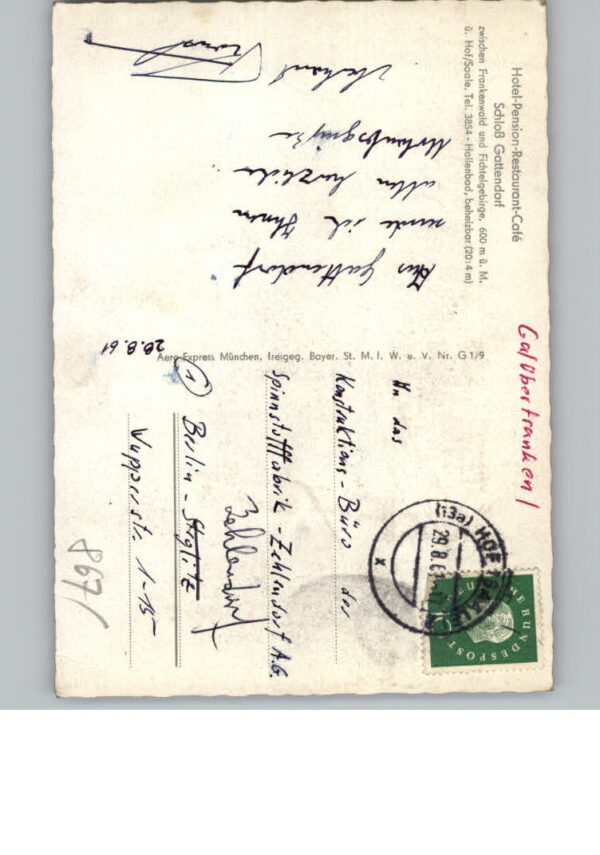 Hotel-Pension-Restaurant-Café
Schloß Gattendorf
zwischen Frankenwald und Fichtelgebirge, 600 m ü. M.
ü. Hof/Saale, Tel. 3854 - Hallenbad, beheizbar (20:4 m)
Aus Gattendorf
sende ich Ihnen
allen herzliche
Urlaubsgrüße
Aero-Express München, freigeg. Bayer. St. M. f. W. u. V. Nr. G 1/9
28.8.61
An das
Konstruktions-Büro der
Spinnstofffabrik-Zehlendorf A.G.
① Berlin-Steglitz
Zehlendorf
Wupperstr. 1-15
(13a) HOF
29.8.61
x
DEUTSCHE BUNDESPOST
10
8671